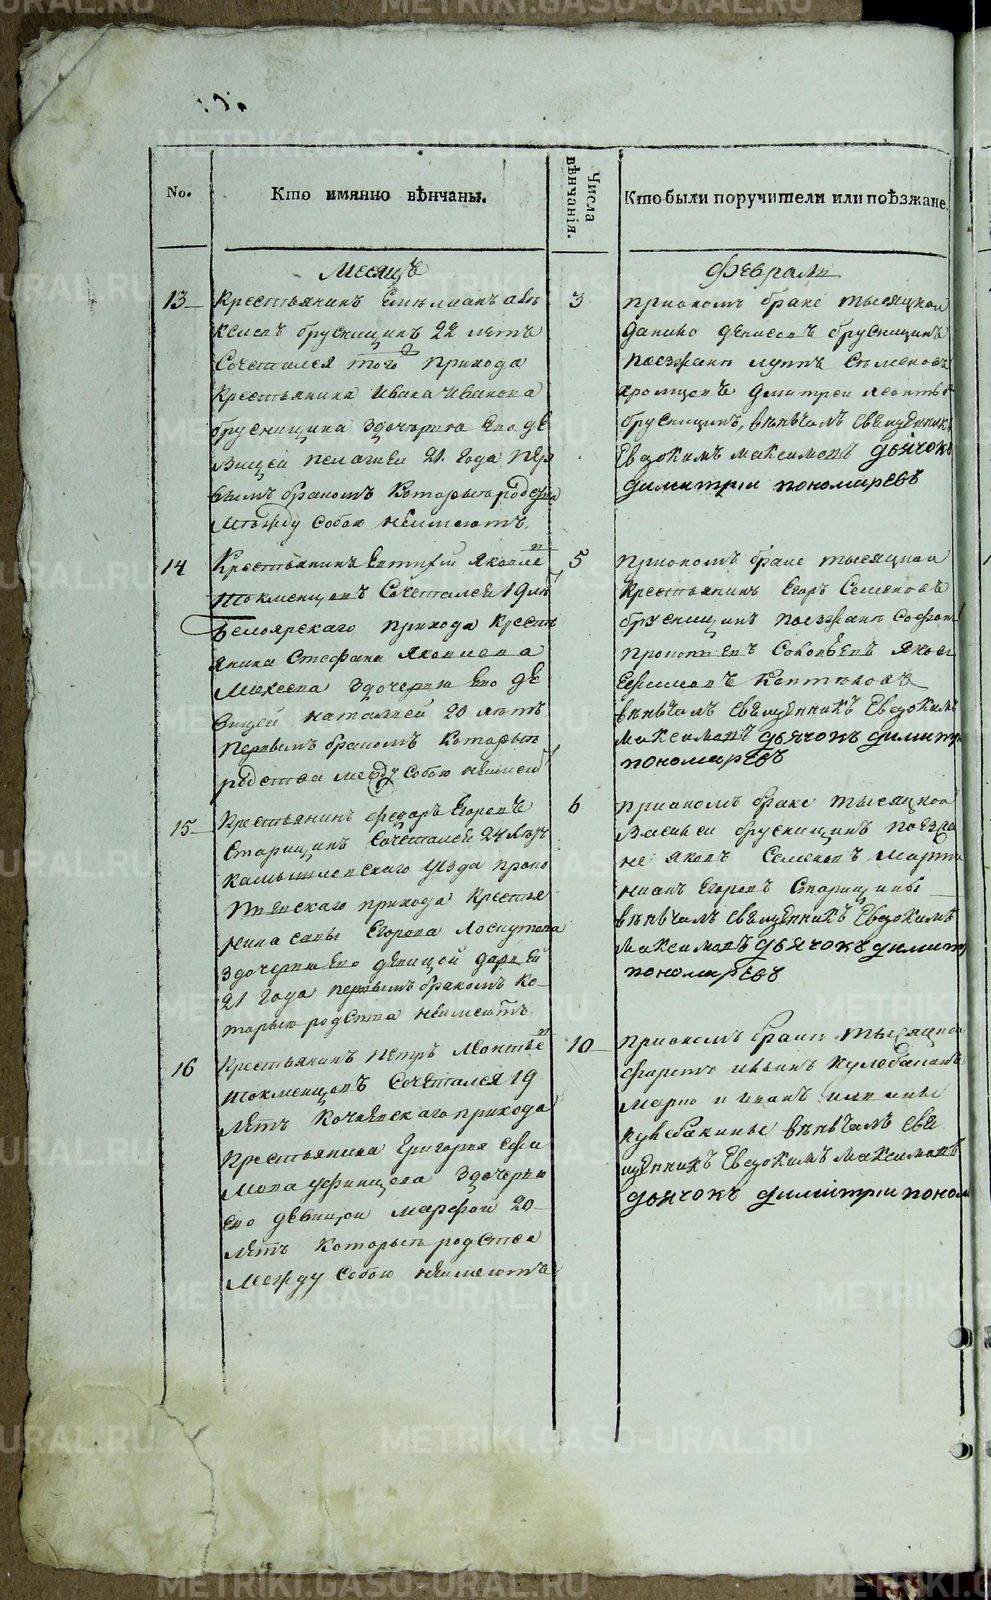 No.
Кто имянно вѣнчаны.
Числа вѣнчанія.
Кто были поручители или поѣзжане.
Месяцъ
Февраль
13
Крестьянинъ Емелианъ Але
ксеевъ брусницинъ 22 летъ
Сочетался того прихода
Крестьянина Ивана Иванова
брусницина здочерью Ево де
вицей пелагиеи 21 года пер
вымъ бракомъ Которые родства
между собою неимеютъ
3
приономъ браке тысяцкои
Данило денисовъ брусницинъ
поезжане
дмитреи леонтьев
брусницинъ, венчалъ священникъ
Евдокимъ Максимовъ дьячокъ
димитрии пономаревъ
14
Крестьянинъ Евтифей Яковле
токменцовъ Сочетался 19 ле
Белоярского прихода кресть
янина Стефана Яковлева
Михеева здочерью Ево де
вицей наталией 20 летъ
первымъ бракомъ Которые
родства между собою неимею
5
приономъ браке тысяцкои
Крестьянинъ Егоръ Семеновъ
брусницинъ поезжане
Соковнев Яков
Ефимовъ Коптеловъ
венчалъ священникъ Евдокимъ
Максимовъ дьячокъ димитри
пономаревъ
15
Крестьянинъ федоръ Егоровъ
Старицинъ Сочетался 24 летъ
Камышловскаго уезда
прихода Крестья
нина савы Егорова Лоскутова
здочерью Ево девицой дарьей
21 года первымъ бракомъ Ко
торые родства неимеютъ
6
приономъ браке тысяцкои
Василеи брусницинъ поезжа
не Яковъ Семеновъ Марти
нианъ Егоровъ Старицины
венчалъ священникъ Евдокимъ
Максимовъ дьячокъ димитр
пономаревъ
16
Крестьянинъ Петръ Леонтье
токменцовъ Сочетался 19
летъ Кочневскаго прихода
Крестьянина Григорья
здочерью
Ево девицои марфой 20
летъ Которые родства
между собою неимеютъ
10
приономъ браке тысяцкои
Кулебакинъ
Марко и иванъ ильины
кулебакины венчалъ свя
щенникъ Евдокимъ Максимовъ
дьячокъ димитрии поном
METRIKI.GASO-URAL.RU